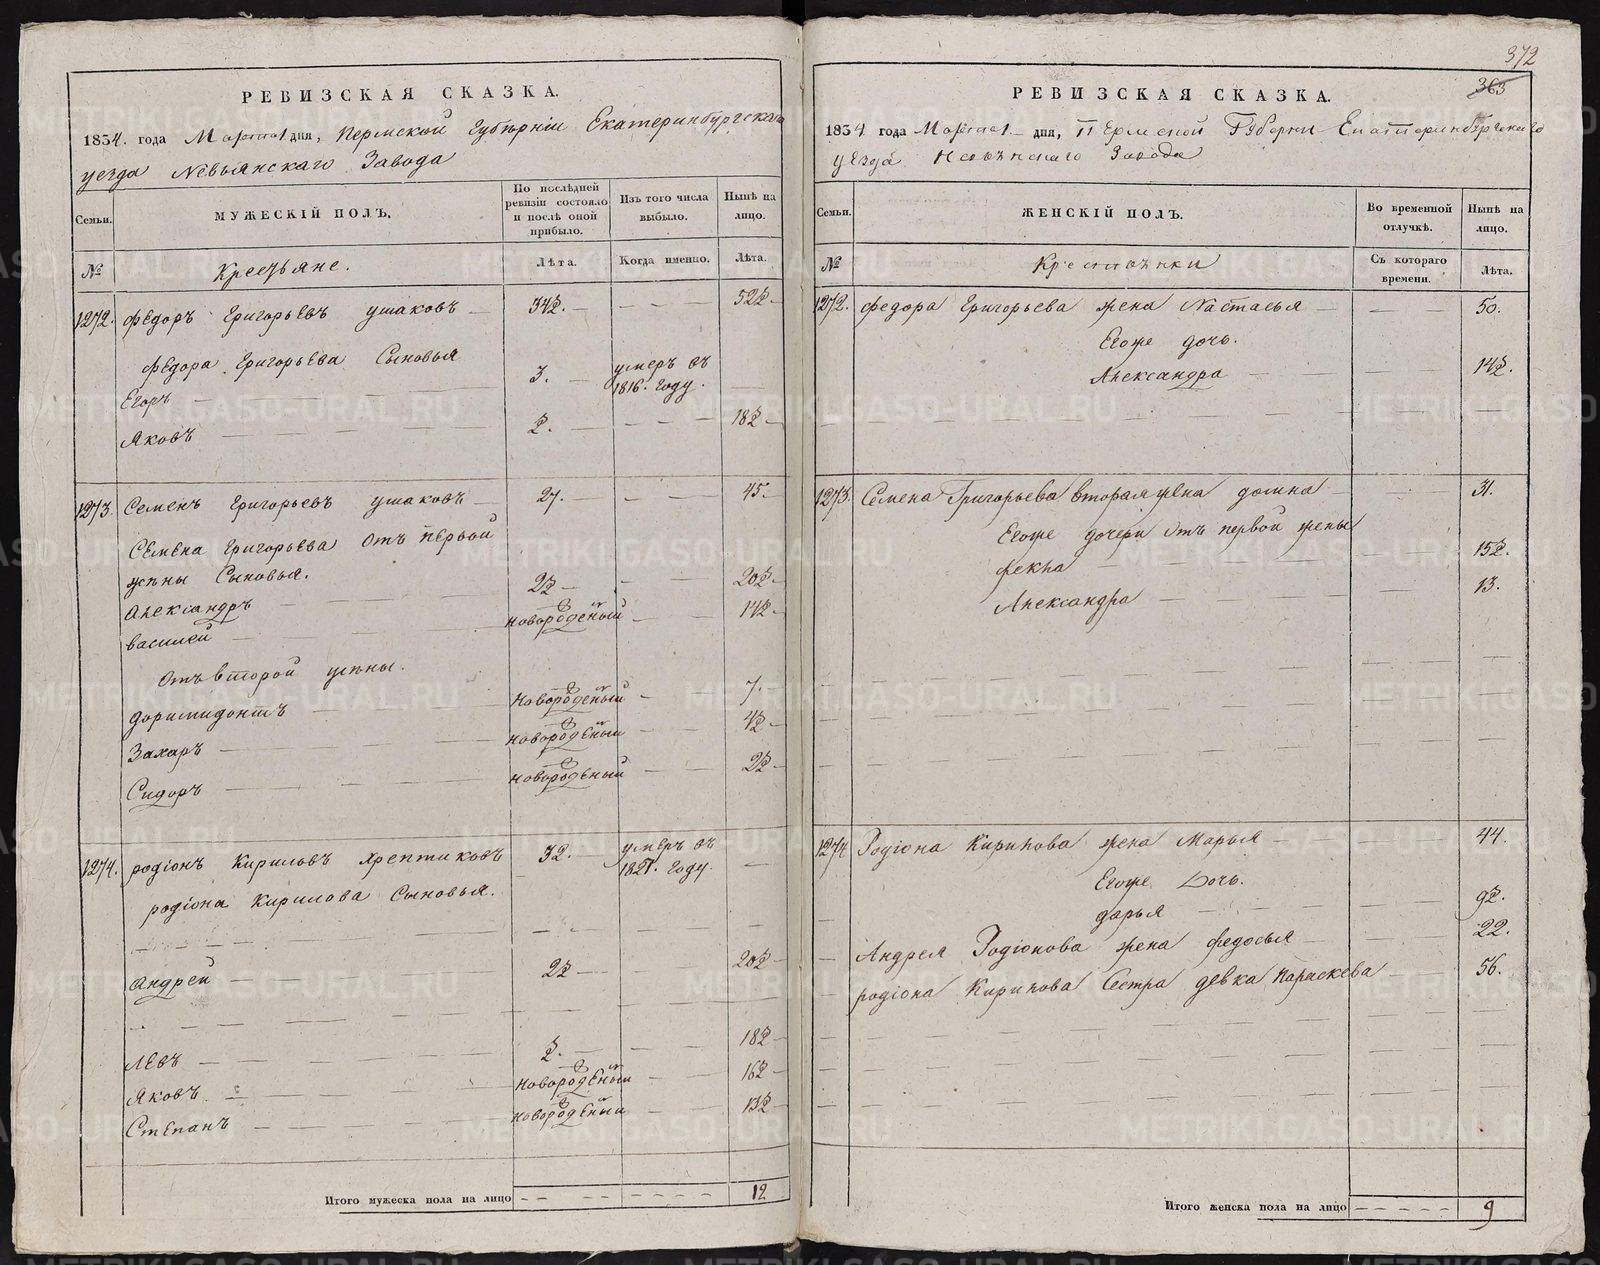 РЕВИЗСКАЯ СКАЗКА.
1834. года Марта дня, Пермской Губѣрніи Екатеринбургскаго
уезда Невьянскаго Завода
Семьи.
МУЖЕСКІЙ ПОЛЪ.
По послѣдней ревизіи состояло и послѣ оной прибыло.
Изъ того числа выбыло.
Нынѣ на лицо.
№
Крестьяне.
Лѣта.
Когда именно.
Лѣта.
1272. Федоръ Григорьевъ Ушаковъ 34½. 52½
Федора Григорьева Сыновья
Егоръ 3. умеръ въ 1816. году.
Яковъ ½. 18½
1273. Семенъ Григорьевъ Ушаковъ 27. 45.
Семена Григорьева отъ первой
жены Сыновья.
Александръ 2½ 20½
Василей новорожденый 14½
отъ второй жены.
Доримидонтъ новорожденый 7.
Захаръ новорожденый 4½
Сидоръ новорожденый 2½
1274. Родіонъ Кириловъ Хрептиковъ 32. умеръ въ 1821. году
Родіона Кирилова Сыновья.
Андрей 2½ 20½
Левъ ½. 18½
Яковъ новорожденый 16½
Степанъ новорожденый 13½
Итого мужеска пола на лицо 12
372
363
РЕВИЗСКАЯ СКАЗКА.
1834 года Марта дня, Пермской Губерни Екатеринбргскаго
уезда Невьянскаго Завода
Семьи.
ЖЕНСКІЙ ПОЛЪ.
Во временной отлучкѣ.
Нынѣ на лицо.
№
Крестьянки
Съ котораго времени.
Лѣта.
1272. Федора Григорьева жена Настасья 50.
Егоже дочь.
Александра 14½.
1273 Семена Григорьева вторая жена Домна 31.
Егоже дочери отъ первой жены
Фекла 15½.
Александра 13.
1274 Родіона Кирилова жена Марья 44.
Егоже Дочь.
Дарья 9½.
Андрея Родіонова жена Федосья 22.
Родіона Кирилова Сестра девка Параскева 56.
Итого женска пола на лицо 9
METRIKI.GASO-URAL.RU